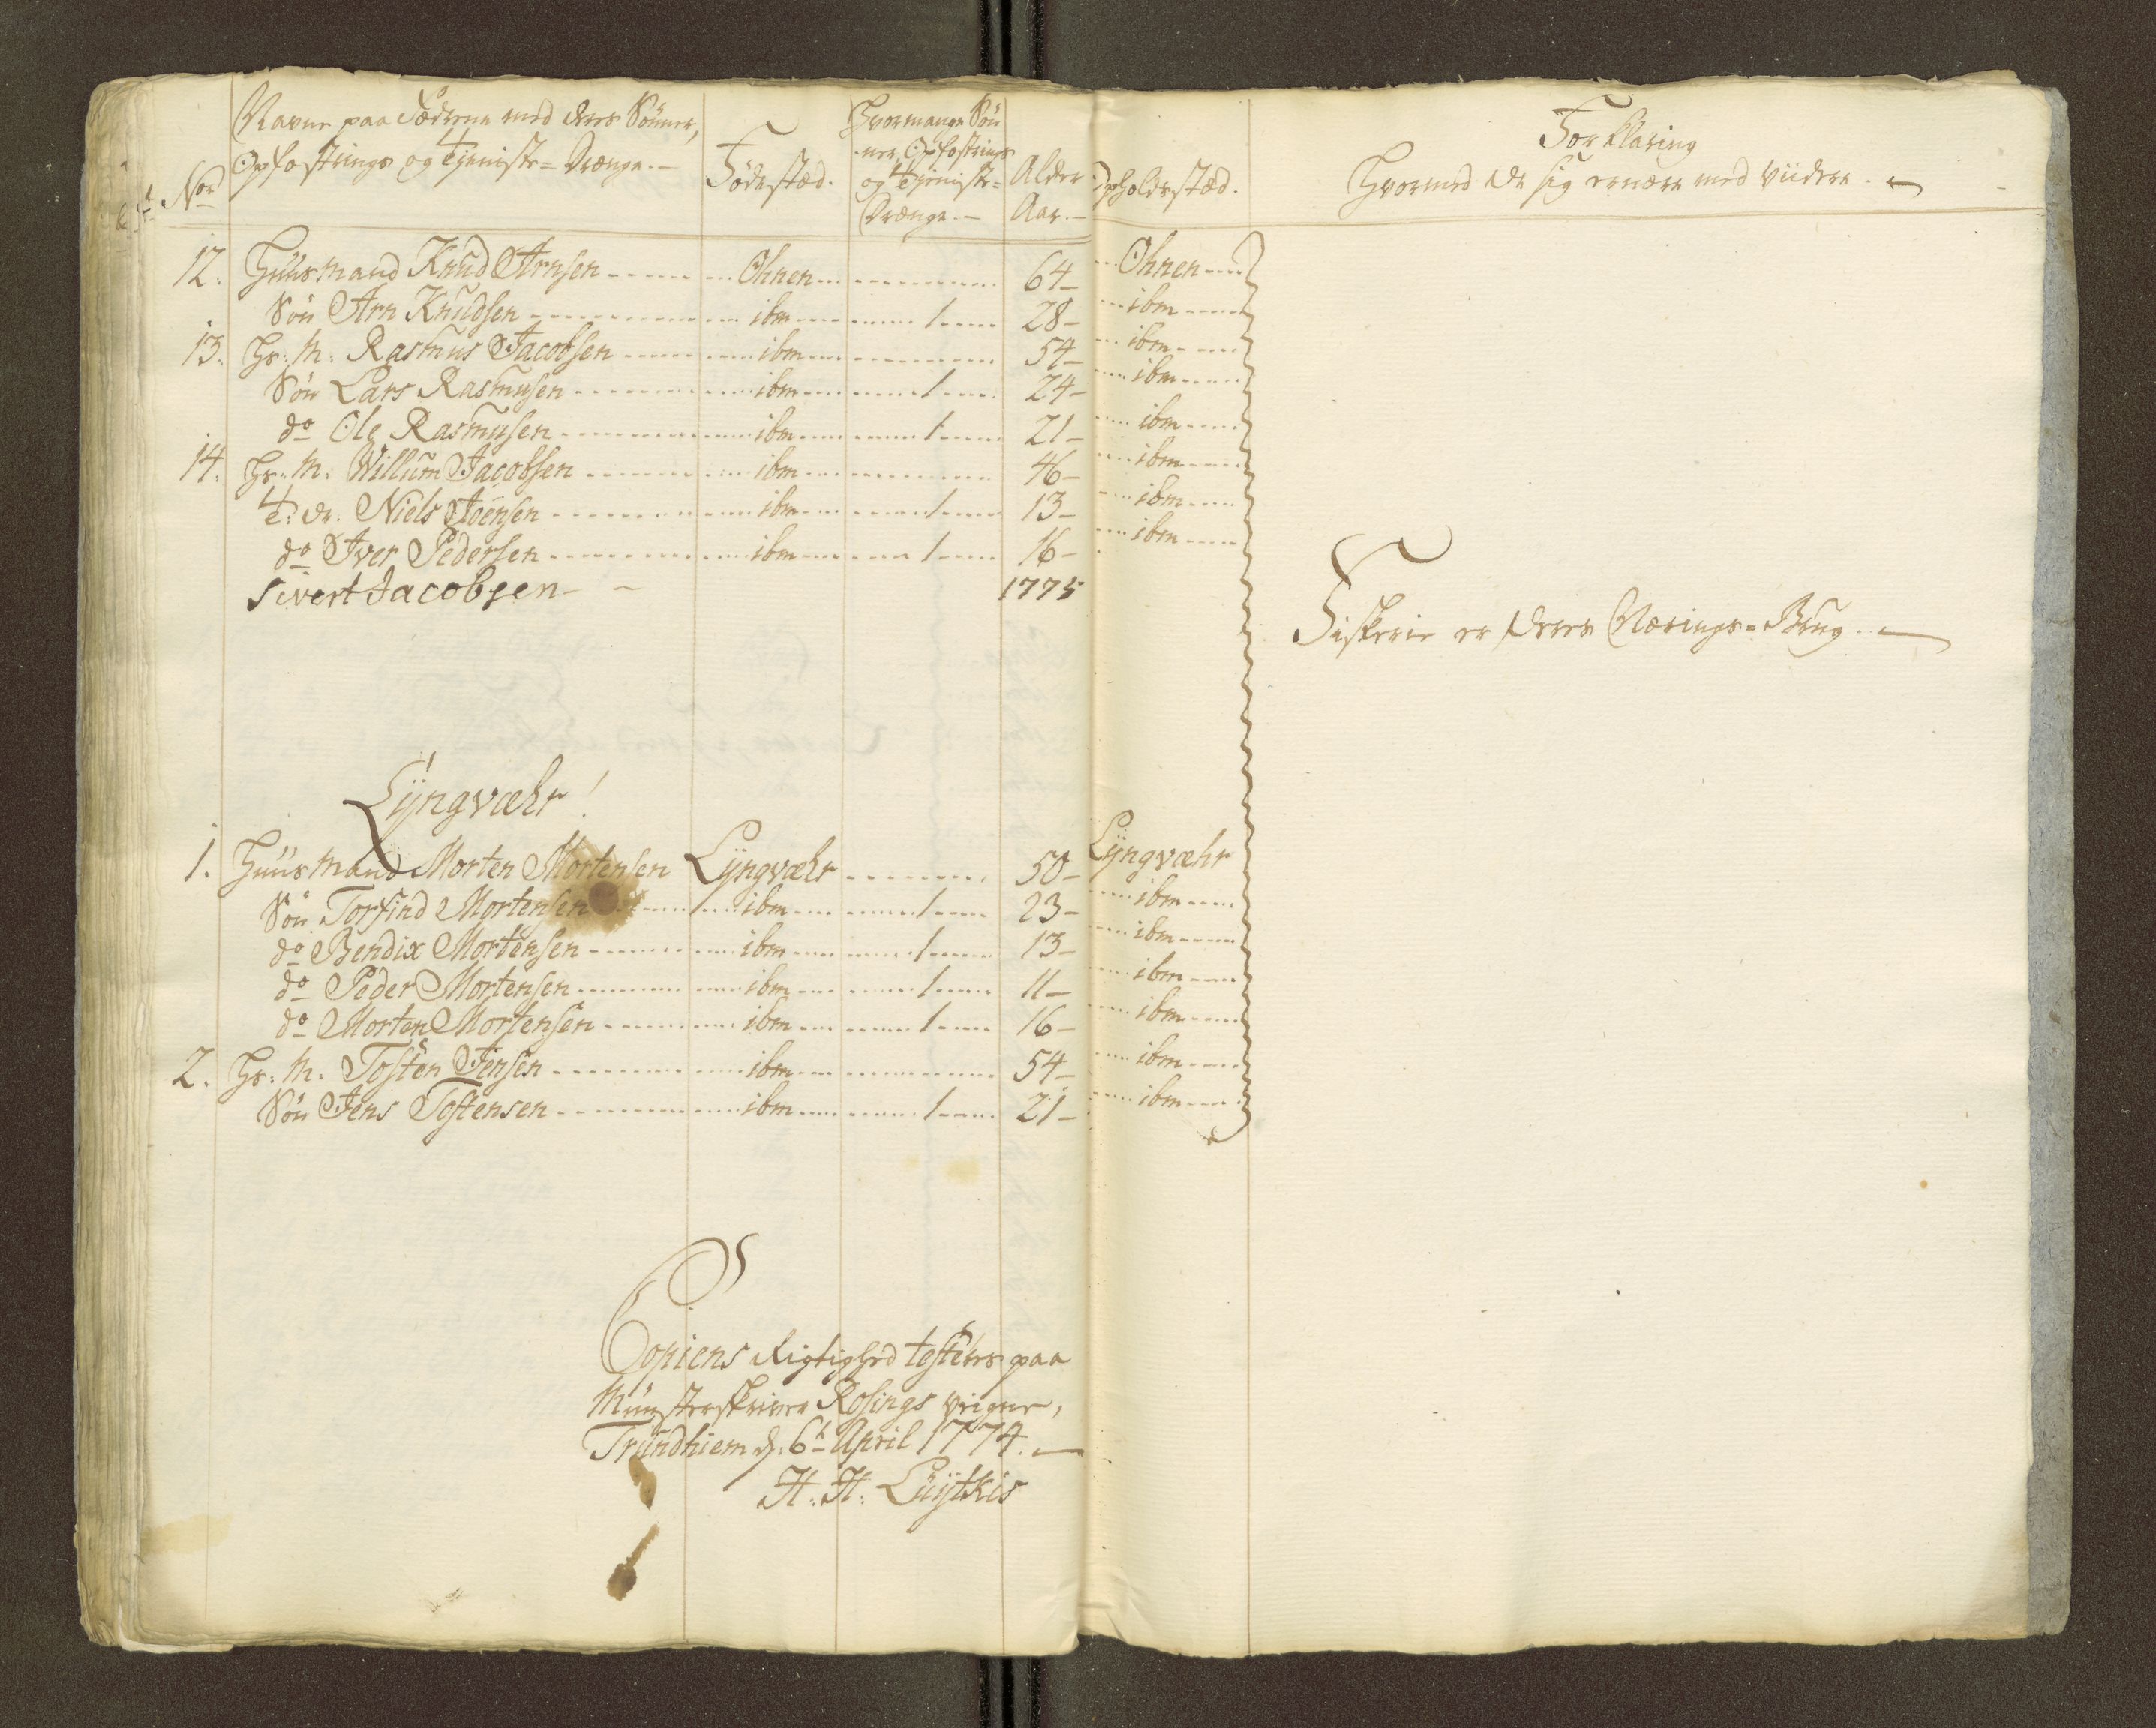 Navne paa Fædrene med deres Sönner,
Opfostrings og Tjeniste= Drænge.—
No
Födestæd.
Hvormange Sön
ner, Opfostrings
og Tjeniste=
Drænge.—
Alder
Aar.—
Opholdsstæd.
Forklaring
Hvormed de sig ernære med viidere.
12. Huusmand Knud Arnsen Ohnen 64 Ohnen
Sön Arn Knudsen ibm 1 28 ibm
13. Hs: M: Rasmus Jacobsen ibm 54 ibm
Sön Lars Rasmusen ibm 1 24 ibm
do Ole Rasmusen ibm 1 21 ibm
14. Hs: M. Willum Jacobsen ibm 46 ibm
T: Dr. Niels Joensen ibm 1 13 ibm
do Iver Pedersen ibm 1 16 ibm
Sivert Jacobsen 1775
Fiskerie er deres Nærings=Brug.
Lÿngvæhr
1. Huusmand Morten Mortensen Lÿngvæhr 50 Lÿngvæhr
Sön Torfind Mortensen ibm 1 23 ibm
do Bendix Mortensen ibm 1 13 ibm
do Peder Mortensen ibm 1 11 ibm
do Morten Mortensen ibm 1 16 ibm
2. Hs: M. Tosten Jensen ibm 54 ibm
Sön Jens Tostensen ibm 1 21 ibm
Copiens Rigtighed testeres paa
Mynsterskriver Rosings veigne,
Trundhiem d: 6t April 1774.
H: H: Luÿtkis